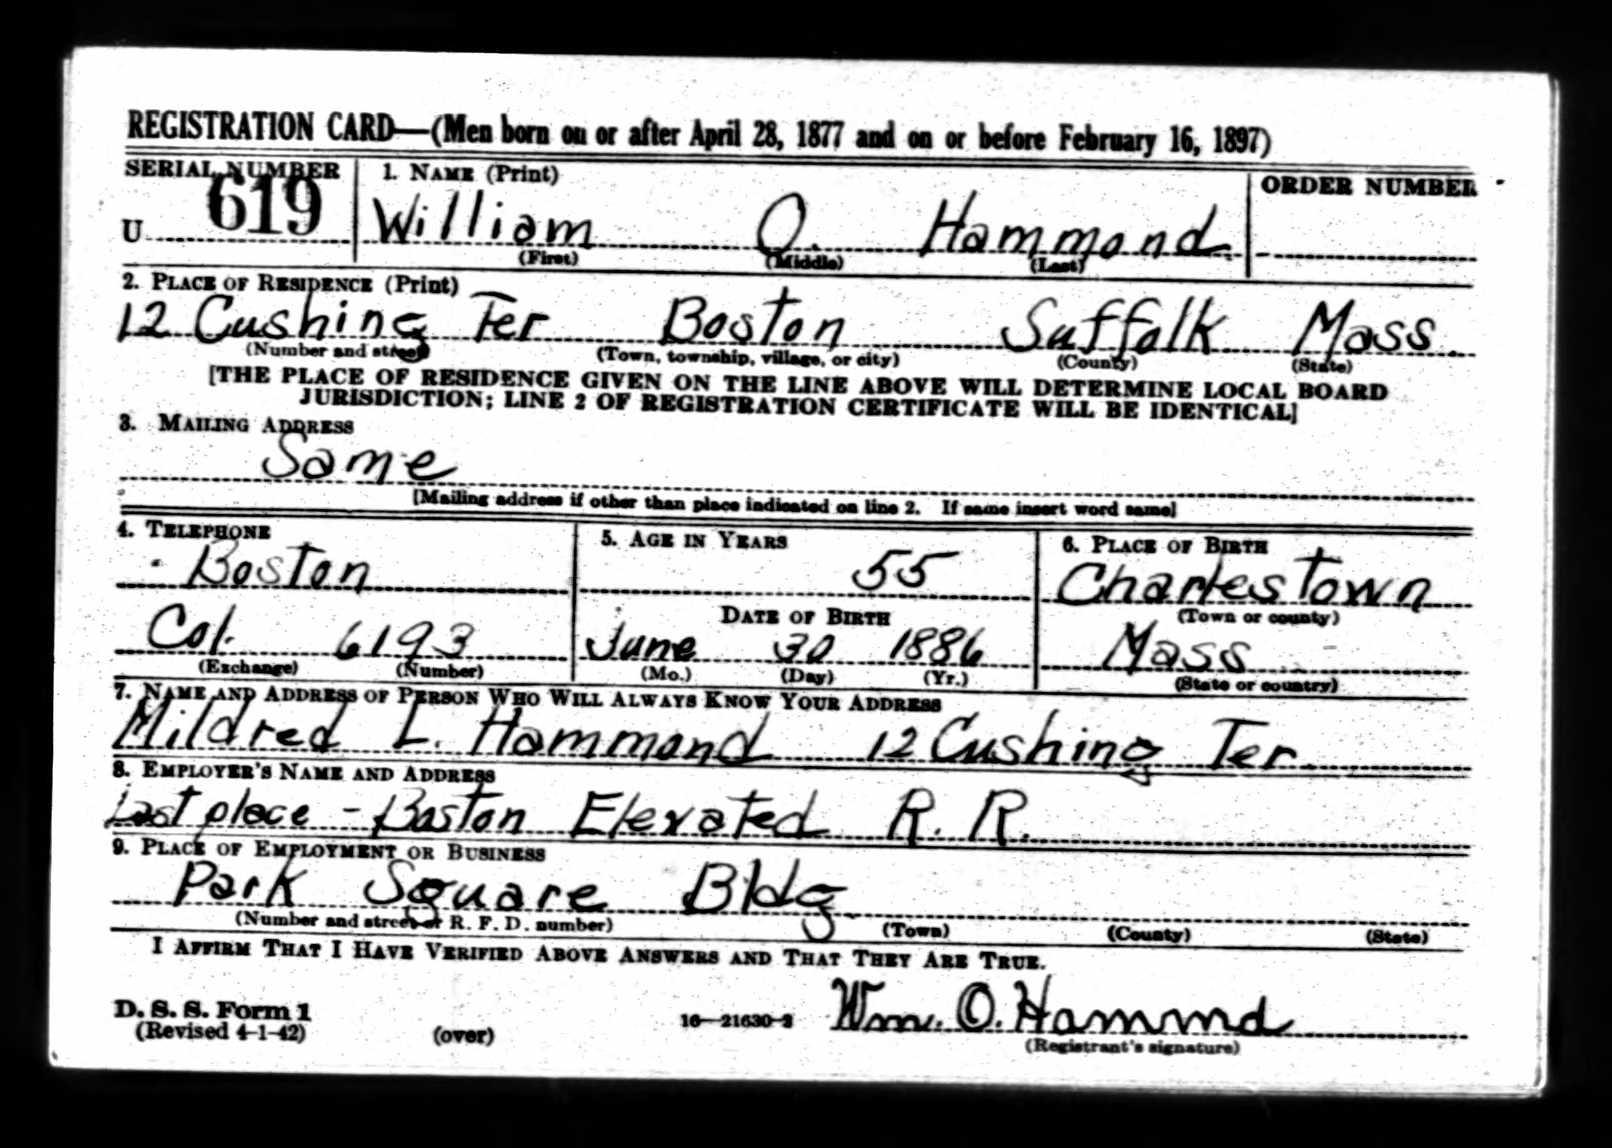 REGISTRATION CARD—(Men born on or after April 28, 1877 and on or before February 16, 1897)
SERIAL NUMBER 1. NAME (Print) ORDER NUMBER
U 619 William O. Hammond
(First) (Middle) (Last)
2. PLACE OF RESIDENCE (Print)
12 Cushing Ter Boston Suffolk Mass.
(Number and street) (Town, township, village, or city) (County) (State)
[THE PLACE OF RESIDENCE GIVEN ON THE LINE ABOVE WILL DETERMINE LOCAL BOARD
JURISDICTION; LINE 2 OF REGISTRATION CERTIFICATE WILL BE IDENTICAL]
3. MAILING ADDRESS
Same
[Mailing address if other than place indicated on line 2. If same insert word same]
4. TELEPHONE 5. AGE IN YEARS 6. PLACE OF BIRTH
Boston 55 Charlestown
DATE OF BIRTH (Town or county)
Col. 6193 June 30 1886 Mass
(Exchange) (Number) (Mo.) (Day) (Yr.) (State or country)
7. NAME AND ADDRESS OF PERSON WHO WILL ALWAYS KNOW YOUR ADDRESS
Mildred L. Hammond 12 Cushing Ter
8. EMPLOYER'S NAME AND ADDRESS
Last place - Boston Elevated R. R.
9. PLACE OF EMPLOYMENT OR BUSINESS
Park Square Bldg
(Number and street or R. F. D. number) (Town) (County) (State)
I AFFIRM THAT I HAVE VERIFIED ABOVE ANSWERS AND THAT THEY ARE TRUE.
D. S. S. Form 1
(Revised 4-1-42) (over) 16—21630-2 Wm. O. Hammond
(Registrant's signature)